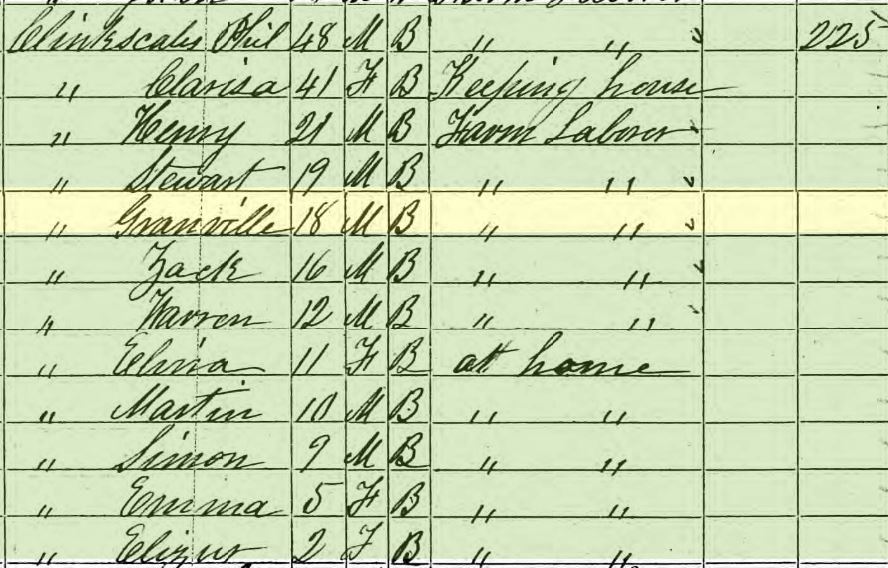 Clinkscales Phil 48 M B " " 225
" Clarisa 41 F B Keeping house
" Henry 21 M B Farm Laborer
" Stewart 19 M B " "
" Granville 18 M B " "
" Zack 16 M B " "
" Warren 12 M B " "
" Elvira 11 F B at home
" Martin 10 M B " "
" Simon 9 M B " "
" Emma 5 F B " "
" 2 F B " "